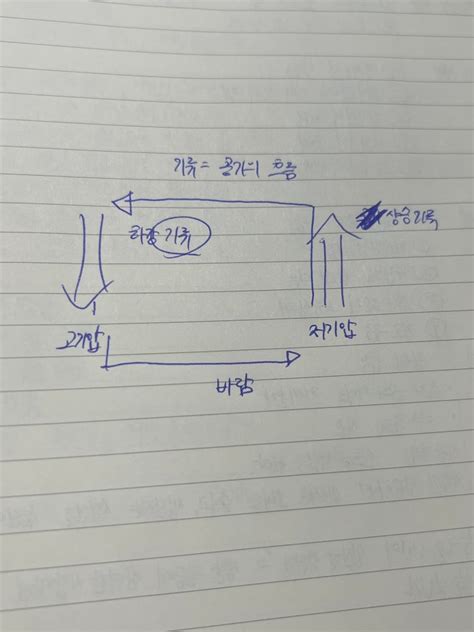 기류 = 공기의 흐름
상승기류
하강 기류
고기압
저기압
바람